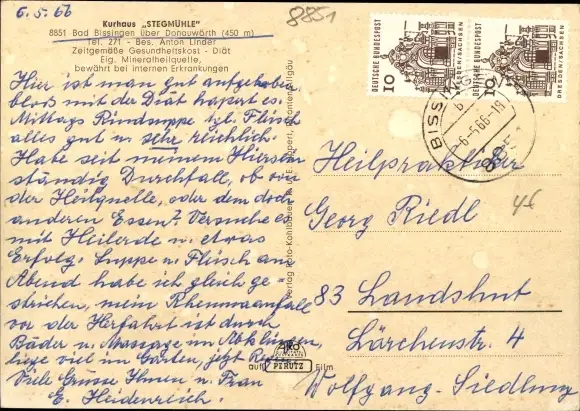 6.5.66
8851
Kurhaus „STEGMÜHLE"
8851 Bad Bissingen über Donauwörth (450 m)
Tel. 271 - Bes. Anton Linder
Zeitgemäße Gesundheitskost - Diät
Eig. Mineralheilquelle,
bewährt bei internen Erkrankungen
Hier ist man gut aufgehoben
bloß mit der Diät hapert es.
Mittags Rindsuppe tgl. Fleisch
alles gut u. sehr reichlich.
Habe seit meinem Hiersein
ständig Durchfall, ob von
der Heilquelle, oder dem doch
anderen Essen? Versuche es
mit Heilerde u. etwas
Erfolg. Suppe u. Fleisch am
Abend habe ich gleich ge-
strichen, mein Rheumaanfall
vor der Herfahrt ist durch
Bäder u. Massage im Abklingen,
liege viel im Garten, jetzt
Viele Grüsse Ihnen u. Frau
E. Heidenreich.
DEUTSCHE BUNDESPOST
10
DRESDEN/SACHSEN
DEUTSCHE BUNDESPOST
10
DRESDEN/SACHSEN
BISSINGEN
-6.-5.66-18
Heilpraktiker
Georg Riedl
46
83 Landshut
Lärchenstr. 4
Wolfgang-Siedlung
auf PERUTZ Film